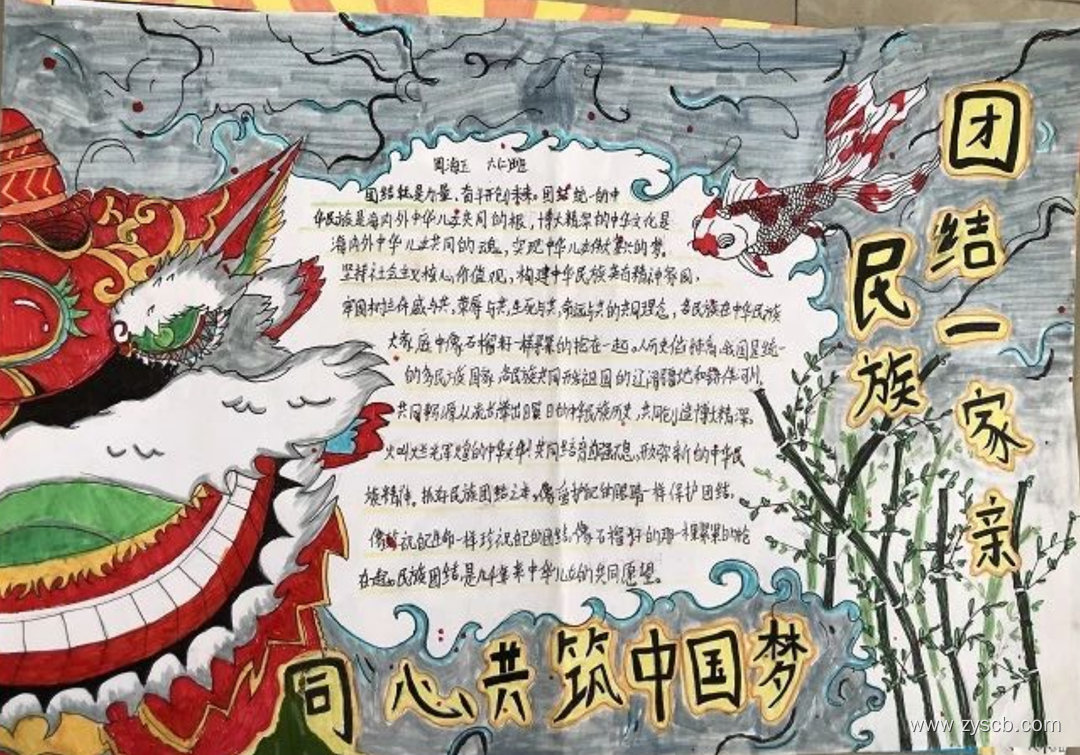 团结一家亲
民族
周海 六 班
团结就是力量，奋斗开创未来。团结统一的中
华民族是海内外中华儿女共同的根，博大精深的中华文化是
海内外中华儿女共同的魂，实现中华儿女的梦。
坚持社会主义核心价值观，构建中华民族共有精神家园，
牢固树立休戚与共，荣辱与共，生死与共，命运与共的共同理念，各民族在中华民族
大家庭中像石榴籽一样紧紧的抱在一起。从历史我国是统一
的多民族国家，各民族共同开拓祖国的辽阔疆域和锦绣河山，
共同的中华民族历史，共同创造博大精深。
光辉的中华文华！共同自强不息，的中华民
族精神。民族团结之本，像爱护自己的眼睛一样保护团结，
像珍视自己生命一样珍视自己的团结，像石榴籽的那一样紧紧的抱
在一起。民族团结是几年来中华儿女的共同愿望。
同心共筑中国梦
www.zyscb.com